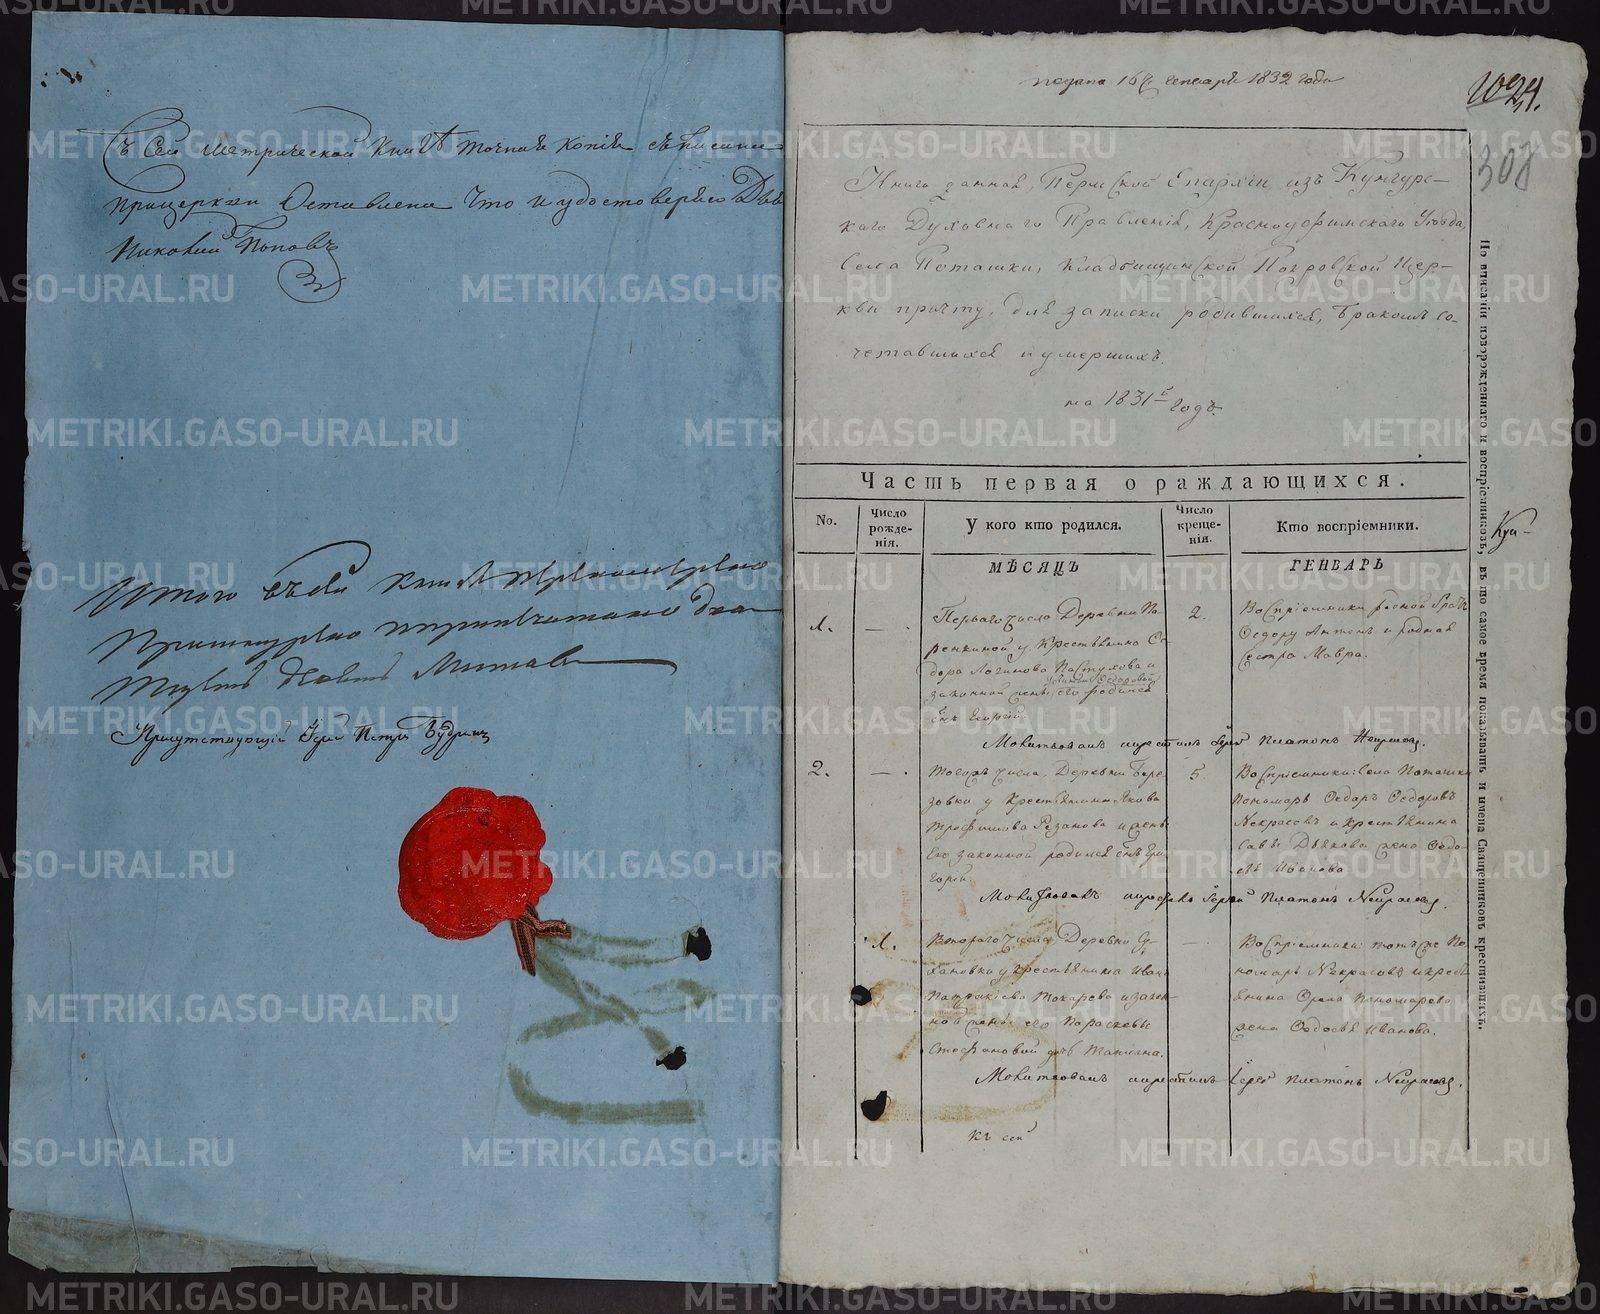 Съ Сей метрической книги точная копія съ писания
при церкви Оставлена Что и удостоверяю Дья
Никовий Поповъ
Итого въ сей книге перенумеровано
Прошнуровано два
Присутствующий Іерей Петръ
подана 16 генваря 1832 года
1024.
308
Книга данная, Пермской Епархіи изъ Кунгурс-
каго Духовнаго Правленія, Красноуфимскаго Уезда,
Села Поташки, Кладбищинской Покровской Цер-
кви причту, для записки родившихся, бракомъ со-
четавшихся и умершихъ.
на 1831й годъ.
Часть первая о раждающихся.
No.
Число рожде-нія.
У кого кто родился.
Число креще-нія.
Кто воспріемники.
МѢСЯЦЪ
ГЕНВАРЬ
1.
Перваго числа Деревни По-
ренкиной у Крестьянина Ѳе-
дора Логинова Пастухова и
законной жены его Ѳедоровой родился
сынъ Георгий
2.
Воспріемники родной братъ
Ѳедору Антонъ и родная
сестра Мавра.
Молитвовалъ и крестилъ Іерей Платонъ Некрасовъ.
2.
Тогожъ числа, Деревни Бере-
зовки у Крестьянина Якова
Трофимова Рязанова и жены
его законной родился сынъ Гри-
горій.
5.
Воспріемники: Села Поташки
пономарь Ѳедоръ Ѳедоровъ
Некрасовъ и крестьянина
Савы Дьякова жена Ѳедо-
сья Иванова
Молитвовалъ и крестилъ Іерей Платонъ Некрасовъ.
1.
Втораго числа Деревни
у крестьянина Ивана
Патракиева Токарева и закон-
ной жены его Парасковьи
Стефановой дочь Татиана.
Воспріемники: тотъ же по-
номарь Некрасовъ и кресть-
янина Пономарева
жена Ѳедосья Иванова.
Молитвовалъ и крестилъ Іерей Платонъ Некрасовъ.
Къ сей
По вписаніи новорожденнаго и воспріемниковъ, въ то самое время показывать и имена Священниковъ крестившихъ.
METRIKI.GASO-URAL.RU